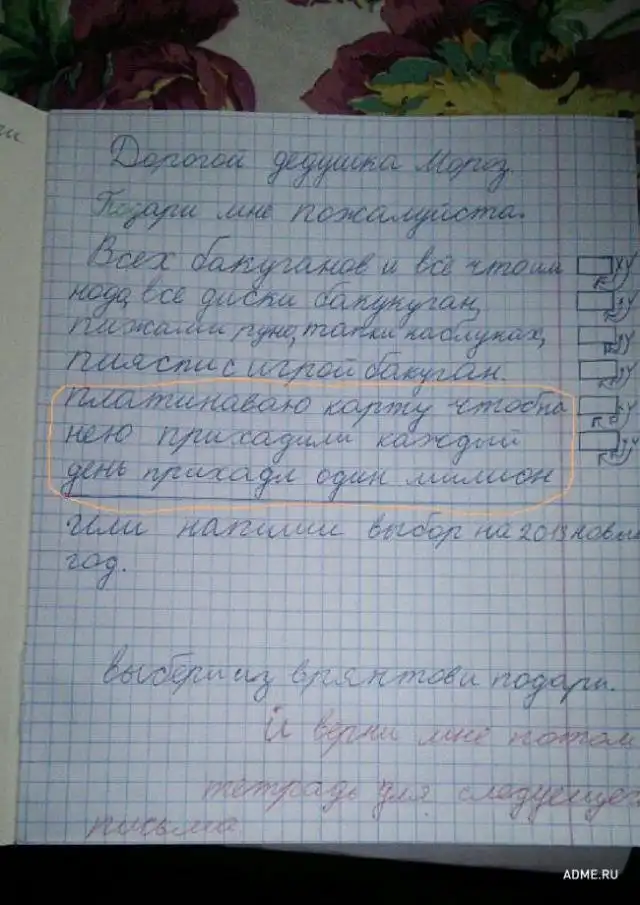 Дорогой дедушка Мороз.
Подари мне пожалуйста.
Всех бакуганов и всё что им
нода, все диски бакукуган,
пижами руно, тапки каблуках,
пияспи с игрой бакуган.
платинаваю карту чтоб на
нею прихадили каждый
день прихадл один милион
Или напиши выбор на 2013 новы
год.
выбери из врянтови подари.
И верни мне потом
тетрадь для следующего
письма
ADME.RU